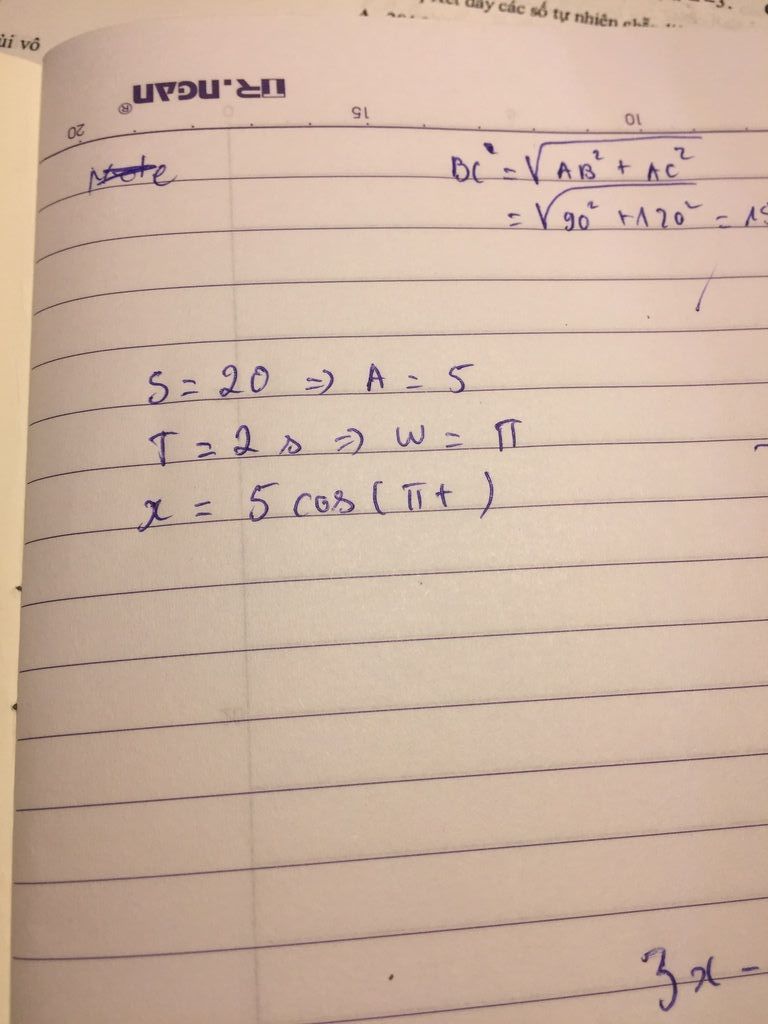 dãy các số tự nhiên
ùi vô
DR.NGAN®
20 15 10
Note
BC² = √AB² + AC²
= √90² + 120² =
S = 20 => A = 5
T = 2 s => W = π
x = 5 cos(πt )
3x -